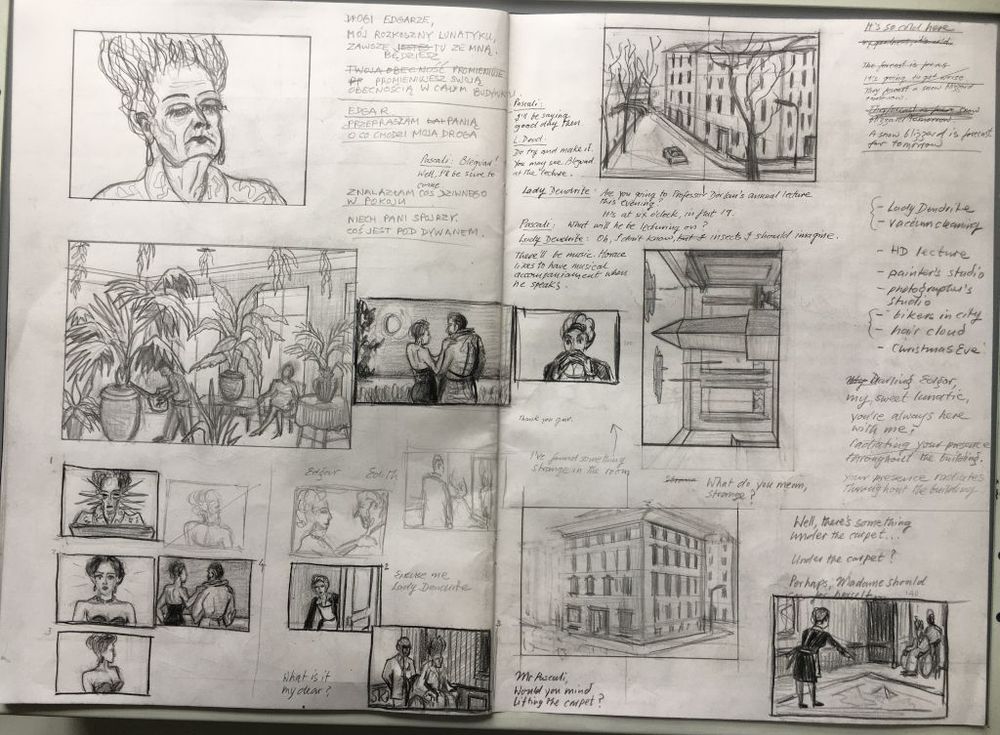 DROGI EDGARZE,
MÓJ ROZKOSZNY LUNATYKU,
ZAWSZE JESTEŚ TU ZE MNĄ.
BĘDZIESZ
TWOJA OBECNOŚĆ PROMIENIUJE
PROMIENIUJESZ SWOJĄ
OBECNOŚCIĄ W CAŁYM BUDYNKU
EDGAR
PRZEPRASZAM PANIĄ
O CO CHODZI MOJA DROGA
Pascali: Blegvad!
Well, I'll be sure to
come
ZNALAZŁAM COŚ DZIWNEGO
W POKOJU
NIECH PANI SPOJRZY.
COŚ JEST POD DYWANEM.
1
2
3
4
Edgar Edith
2
Excuse me
Lady Dendrite
What is it
my dear?
Pascali:
I'll be saying
good day then
L. Dend:
Do try and make it.
You may see Blegvad
at the lecture.
Lady Dendrite: Are you going to Professor Dorlun's annual lecture
this evening?
It's at six o'clock, in flat 19.
Pascali: What will he be lecturing on?
Lady Dendrite: Oh, I don't know, but of insects I should imagine.
There'll be music. Horace
likes to have musical
accompaniment when
he speaks.
Thank you
I've found something
strange in the room
Strange What do you mean,
strange?
Mr Pascali,
Would you mind
lifting the carpet?
It's so cold here
The forecast is
It's going to get worse.
They forecast a snow blizzard
tomorrow.
blizzard tomorrow
A snow blizzard is forecast
for tomorrow
- Lady Dendrite
- vaccum cleaning
- HD lecture
- painter's studio
- photographer's
studio
- bikers in city
- hair cloud
- Christmas Eve
My Darling Edgar,
my sweet lunatic,
you're always here
with me,
radiating your presence
throughout the building.
Your presence radiates
throughout the building
Well, there's something
under the carpet...
Under the carpet?
Perhaps, Madame should